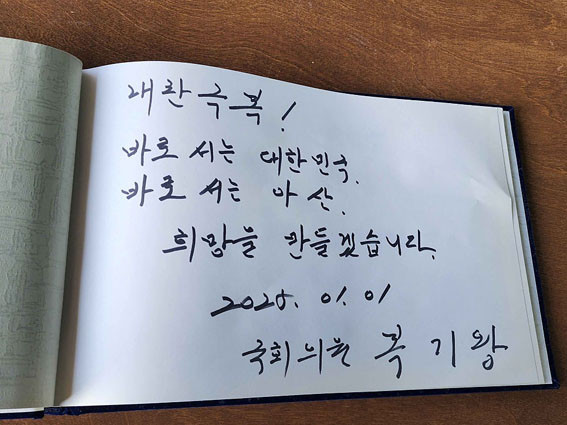 내란극복!
바로 서는 대한민국,
바로 서는 아산,
희망을 만들겠습니다.
2025. 01. 01
국회의원 복기왕